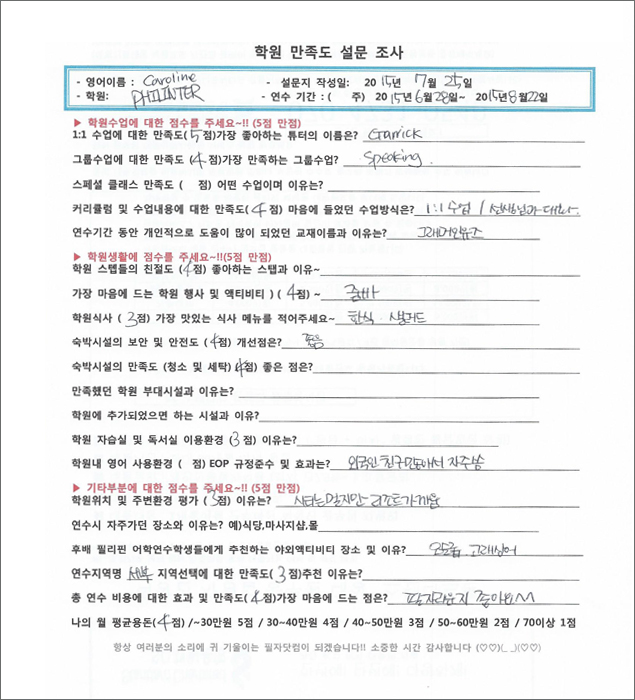 학원 만족도 설문 조사
- 영어이름 : Caroline - 설문지 작성일: 2015년 7월 25일
- 학원: PHILINTER - 연수 기간 : ( 주) 2015년 6월 28일~ 2015년 8월 22일
▶ 학원수업에 대한 점수를 주세요~!! (5점 만점)
1:1 수업에 대한 만족도(5점)가장 좋아하는 튜터의 이름은? Garrick
그룹수업에 대한 만족도(4점)가장 만족하는 그룹수업? Speaking.
스페셜 클래스 만족도 ( 점) 어떤 수업이며 이유는?
커리큘럼 및 수업내용에 대한 만족도(4점) 마음에 들었던 수업방식은? 1:1 수업 / 선생님과 대화.
연수기간 동안 개인적으로 도움이 많이 되었던 교재이름과 이유는? 그래머인유즈
▶ 학원생활에 점수를 주세요~!!(5점 만점)
학원 스텝들의 친절도 (4점) 좋아하는 스탭과 이유~
가장 마음에 드는 학원 행사 및 액티비티 ) ( 4점) ~ 줌바
학원식사 ( 3점) 가장 맛있는 식사 메뉴를 적어주세요~ 한식.
숙박시설의 보안 및 안전도 (4점) 개선점은? 좋음
숙박시설의 만족도 (청소 및 세탁) (4점) 좋은 점은?
만족했던 학원 부대시설과 이유는?
학원에 추가되었으면 하는 시설과 이유?
학원 자습실 및 독서실 이용환경 (3점) 이유는?
학원내 영어 사용환경 ( 점) EOP 규정준수 및 효과는? 외국인 친구만나서 자주씀
▶ 기타부분에 대한 점수를 주세요~!! (5점 만점)
학원위치 및 주변환경 평가 (3점) 이유는? 시티는멀지만 리조트가까움
연수시 자주가던 장소와 이유는? 예)식당,마사지샵,몰
후배 필리핀 어학연수학생들에게 추천하는 야외액티비티 장소 및 이유? 오슬롭. 고래상어
연수지역명 세부 지역선택에 대한 만족도(3점)추천 이유는?
총 연수 비용에 대한 효과 및 만족도(4점)가장 마음에 드는 점은? 필자라운지 좋아요
나의 월 평균용돈(4점) /~30만원 5점 / 30~40만원 4점 / 40~50만원 3점 / 50~60만원 2점 / 70이상 1점
항상 여러분의 소리에 귀 기울이는 필자닷컴이 되겠습니다!! 소중한 시간 감사합니다 (♡♡)(_ _)(♡♡)